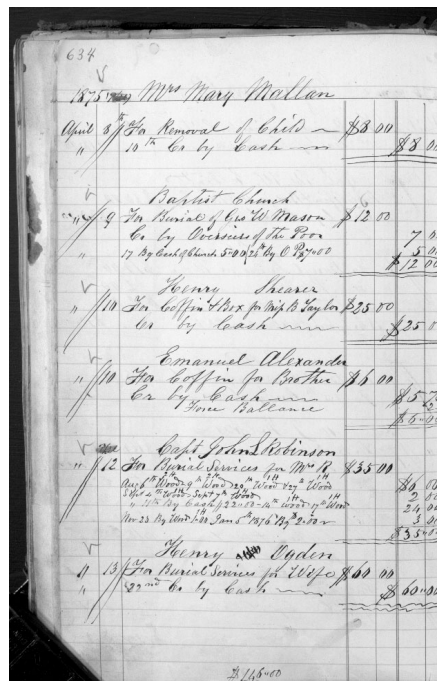 634
1875 Mrs Mary Mallan
April 8th For Removal of Child $8 00
" 10th Cr by Cash $8 00
Baptist Church
" 9 For Burial of Geo W. Mason $12 00
Cr by Overseers of the Poor 7 00
" 17 By Cash of Church 5=00 24th By O P $7=00 5 00
$12 00
Henry Shearer
" 10 For Coffin & Box for B Taylor $25 00
" Cr by Cash $25 00
Emanuel Alexander
" 10 For Coffin for Brother $6 00
Cr by Cash $5
Ballance
$6=00
Capt. John S Robinson
" 12 For Burial Services for Mrs R. $35 00
Aug 6th Wood 9th Wood 20th Wood & 27th Wood
Sept 4th Wood Sept 7th Wood 2 00
" 11th By Cash $22=00 14th Wood 17th Wood 24 00
Nov 23 By Wood 1=00 Jan 5th 1876 By $2=00 3 00
$35=00
Henry Ogden
" 13 For Burial Services for Wife $60 00
" 22nd Cr by Cash $60=00
$146=00